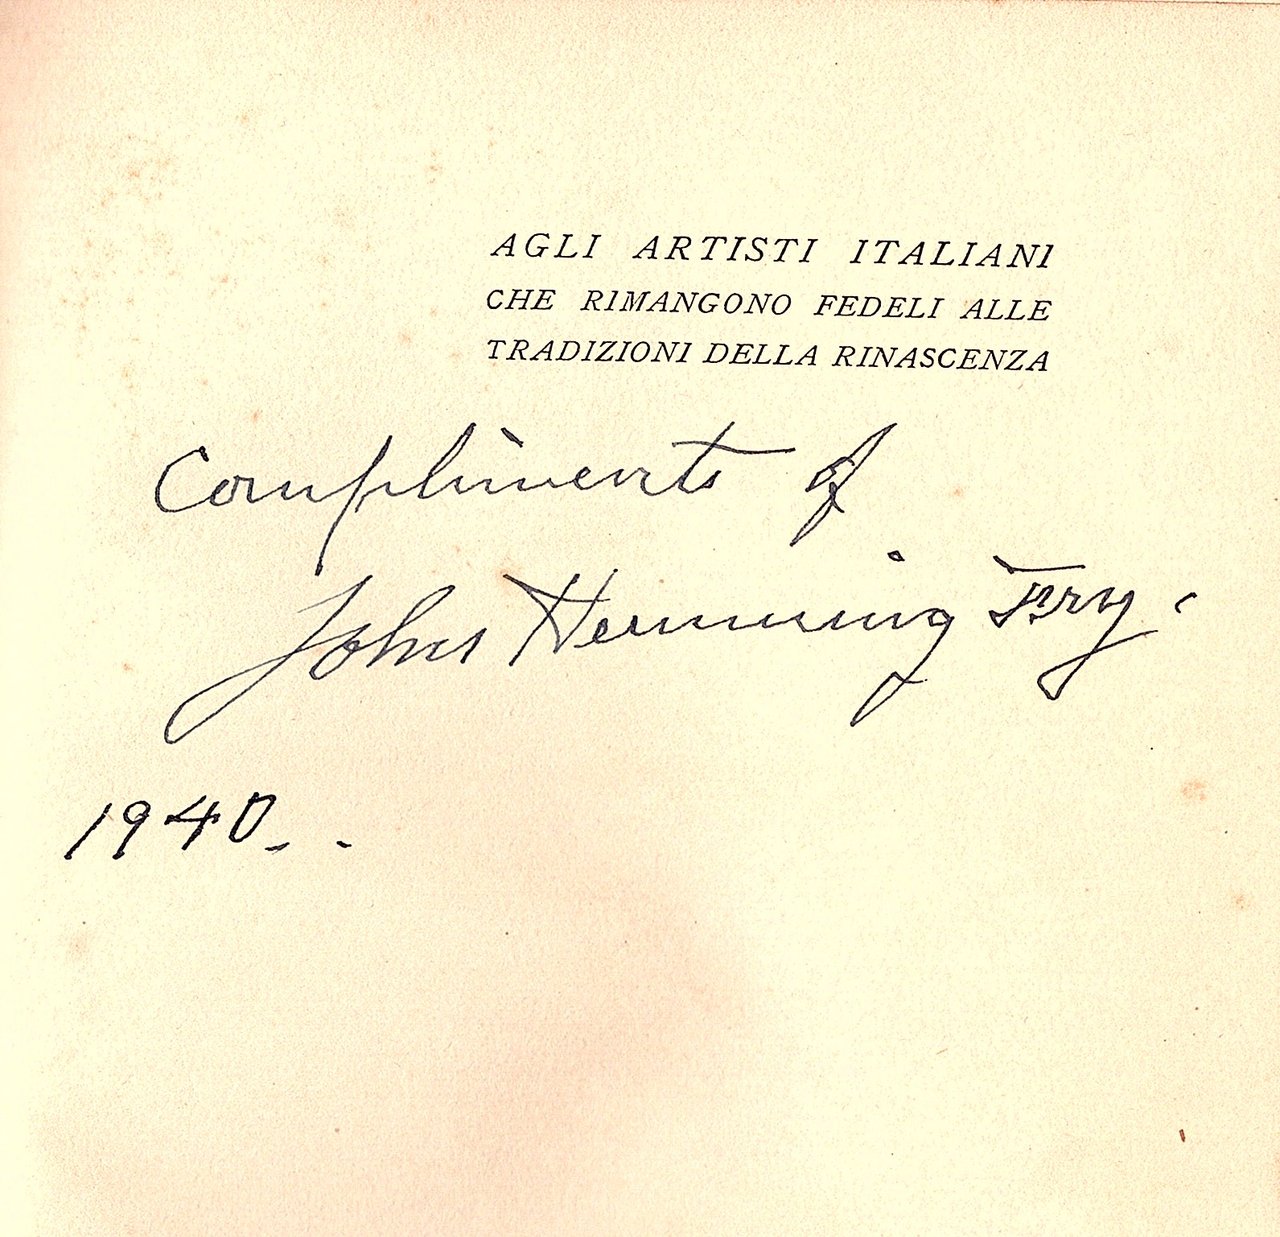 AGLI ARTISTI ITALIANI
CHE RIMANGONO FEDELI ALLE
TRADIZIONI DELLA RINASCENZA
Compliments of
John Hemming Fry.
1940..